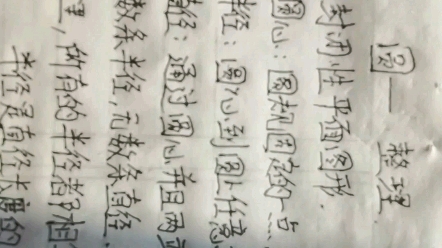 圆一 整理
封闭性平面图形
圆心:圆规固定的一点
半径:圆心到圆上任意
直径:通过圆心并且两
数条半径,无数条直径
里,所有的半径都相
半径是直径长度的